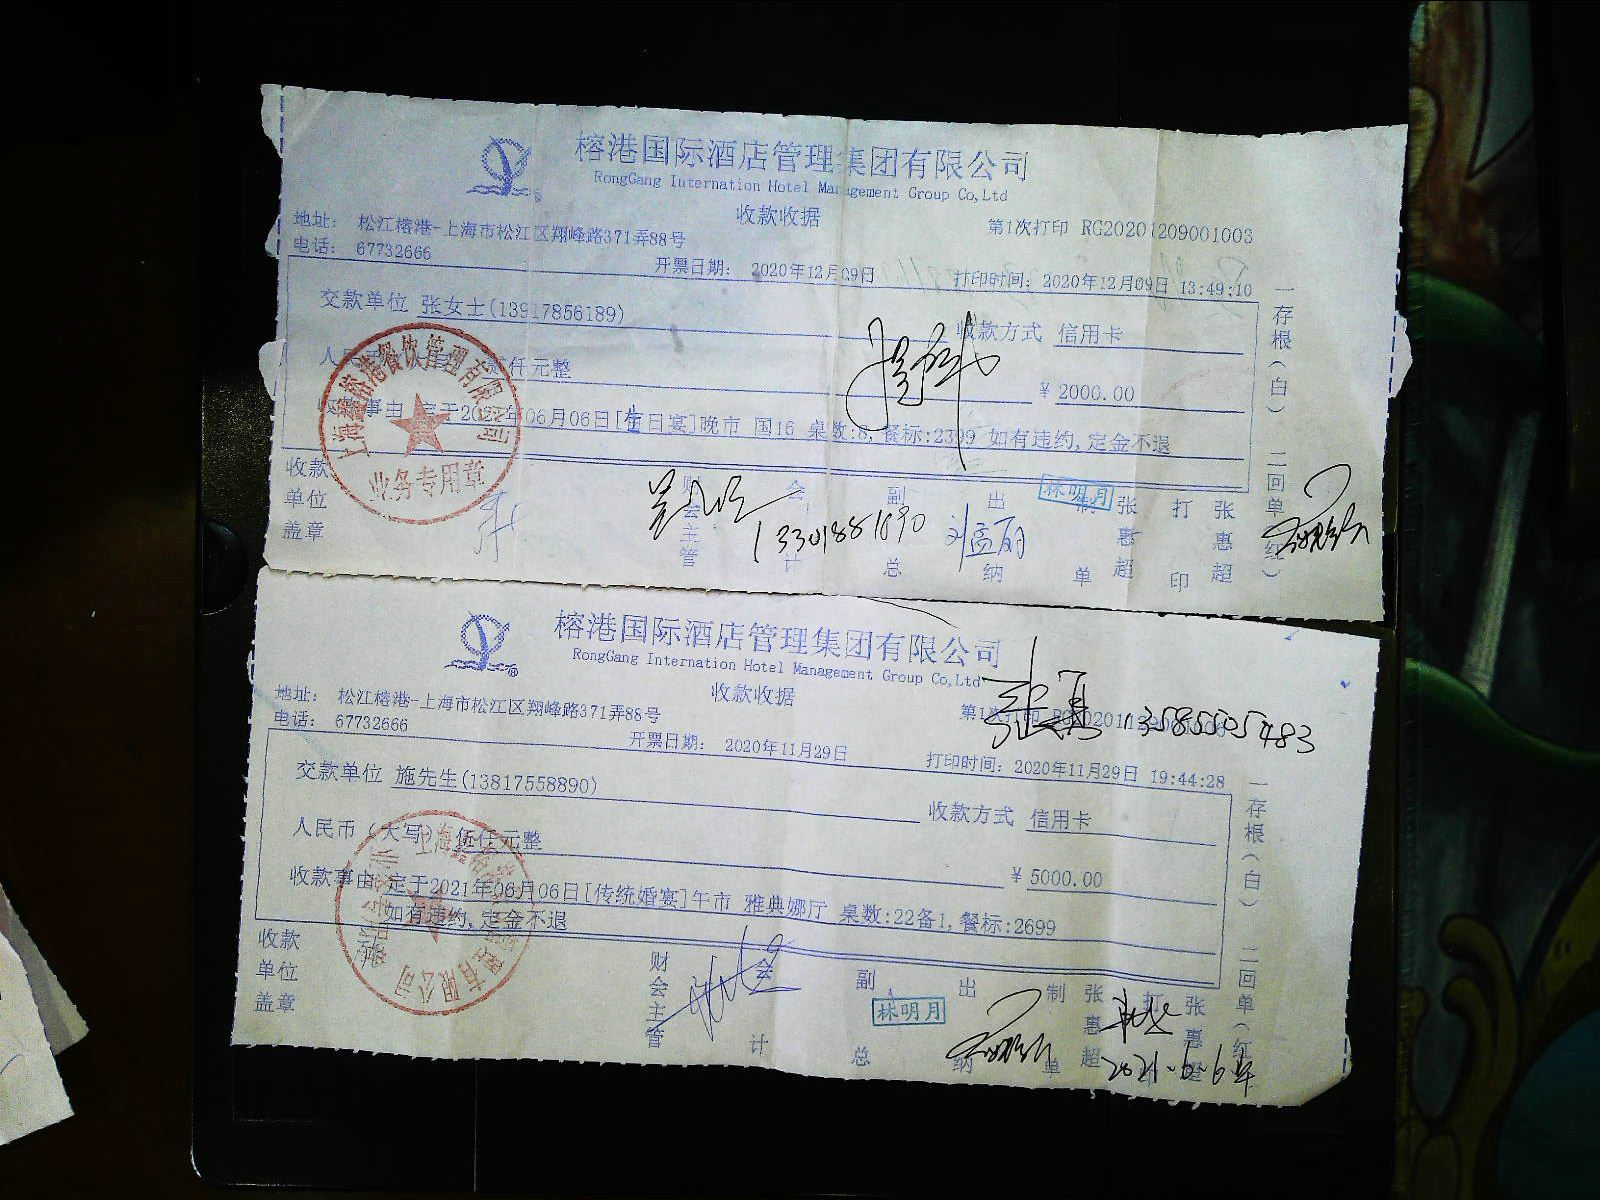 榕港国际酒店管理集团有限公司
RongGang Internation Hotel Management Group Co,Ltd
收款收据
第1次打印 RG20201209001003
地址： 松江榕港-上海市松江区翔峰路371弄88号
电话： 67732666
开票日期： 2020年12月09日
打印时间：2020年12月09日 13:49:10
交款单位 张女士(13917856189)
收款方式 信用卡
人民币 仟元整
￥ 2000.00
收款事由 定于2021年06月06日[生日宴]晚市 国16 桌数:8,餐标:2399 如有违约,定金不退
收款单位盖章
财会主管
会计
副总
出纳
制单 张惠超
打印 张惠超
一存根(白) 二回单(红)
上海榕港餐饮管理有限公司
业务专用章
林明月
13301881890
刘孟丽
榕港国际酒店管理集团有限公司
RongGang Internation Hotel Management Group Co,Ltd
收款收据
第1次打印
13585505483
地址： 松江榕港-上海市松江区翔峰路371弄88号
电话： 67732666
开票日期： 2020年11月29日
打印时间：2020年11月29日 19:44:28
交款单位 施先生(13817558890)
收款方式 信用卡
人民币（大写） 伍仟元整
￥ 5000.00
收款事由 定于2021年06月06日[传统婚宴]午市 雅典娜厅 桌数:22备1,餐标:2699
如有违约,定金不退
收款单位盖章
财会主管
会计
副总
出纳
制单 张惠超
打印 张惠超
一存根(白) 二回单(红)
林明月
2021.6.6